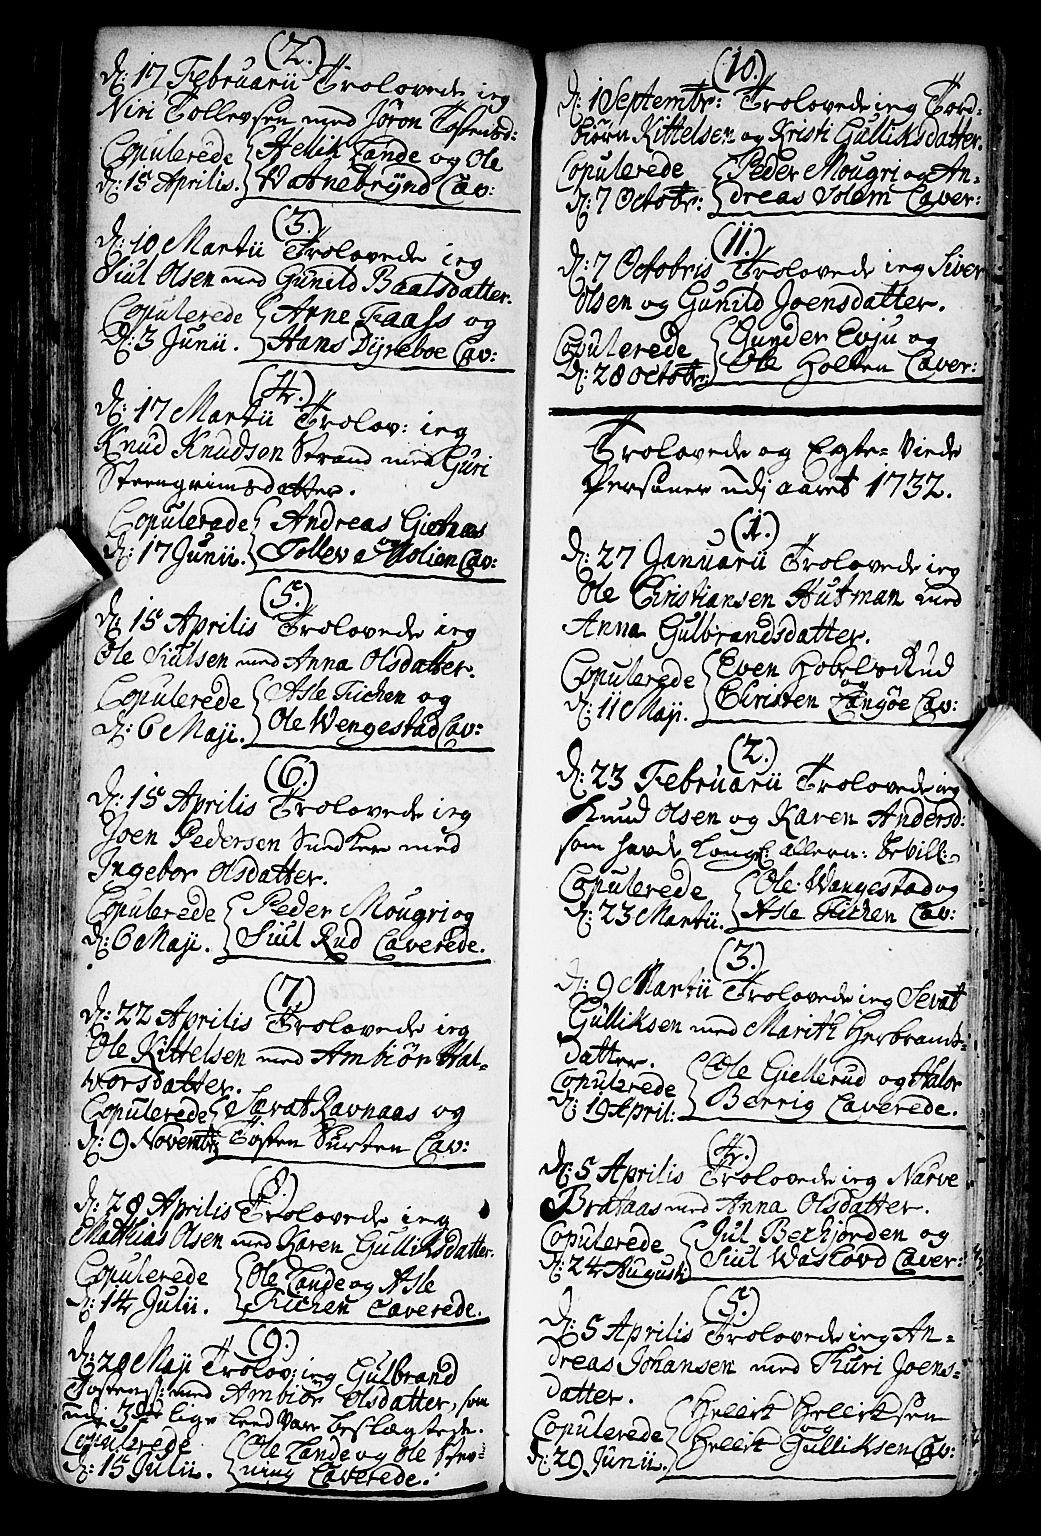 (2.)
d: 17 Februarii Trolovede ieg
Niri Tollevsen med Jöron Tostensd:
Copulerede Helik Lande og Ole
d: 15 Aprilis. Watnebrynd Cav:
(3.)
d: 10 Martii Trolovede ieg
Siul Olsen med Gunild Baalsdatter.
Copulerede Arne Faass og
d: 3 Junii. Hans Dyreboe Cav:
(4.)
d: 17 Martii Trolov: ieg
Knud Knudson Strand med Guri
Steengrimsdatter.
Copulerede Andreas Gietnaes
d: 17 Junii. Tollev a Molien Cav:
(5.)
d: 15 Aprilis Trolovede ieg
Ole Siulsen med Anna Olsdatter.
Copulerede Asle Kichen og
d: 6 Maji. Ole Wengestad Cav:
(6.)
d: 15 Aprilis Trolovede ieg
Joen Pedersen med
Ingebor Olsdatter.
Copulerede Peder Mougri og
d: 6 Maji. Siul Rud Caverede.
(7.)
d: 22 Aprilis Trolovede ieg
Ole Kittelsen med Ambiör Hal-
worsdatter.
Copulerede Savat Ravnaas og
d: 9 Novembr Tosten Surten Cav:
(8.)
d: 28 Aprilis Trolovede ieg
Matthias Olsen med Karen Gulliksdatter.
Copulerede Ole Lande og Asle
d: 14 Julii. Kichen Caverede.
(9.)
d: 20 Maji Trolov: ieg Gulbrand
Tostens: med Ambiör Olsdatter, som
udi 3die lige leed vare beslegtede.
Copulerede Ole Lande og Ole Stev-
d: 15 Julii. ning Caverede.
(10.)
d: 1 Septembr: Trolovede ieg Tord-
biörn Kittelsen og Kristi Gulliksdatter.
Copulerede Peder Mougri og An-
d: 7 Octobr: dreas Solem Caver:
(11.)
d: 7 Octobris Trolovede ieg Siver
Olsen og Gunild Joensdatter.
Copulerede Gunder Evju og
d: 28 Octobr: Ole Holten Caver:
Trolovede og Egte-Viede
Persöner udj aaret 1732.
(1.)
d: 27 Januarii Trolovede ieg
Ole Christiansen Hutman med
Anna Gulbrandsdatter.
Copulerede Even Hobelsrud
og
d: 11 Maji. Christen Langöe Cav:
(2.)
d: 23 Februarii Trolovede ieg
Knud Olsen og Karen Andersd:
som havde Kongl: allern: bevill:
Copulerede Ole Wangestad og
d: 23 Martii. Asle Kichen Cav:
(3.)
d: 9 Martii Trolovede ieg Sevat
Gulliksen med Marith Herbrands-
datter.
Copulerede Ole Giellerud og Halor
d: 19 April: Berrig Caverede.
(4.)
d: 5 Aprilis Trolovede ieg Narve
Brataas med Anna Olsdatter.
Copulerede Jul Berhjorden og
d: 24 August Siul Waslovd Caver:
(5.)
d: 5 Aprilis Trolovede ieg An-
dreas Johansen med Thuri Joens-
datter.
Copulerede Helleik Helleiksen
og
d: 29 Junii. Helleik Gulliksen Cav: